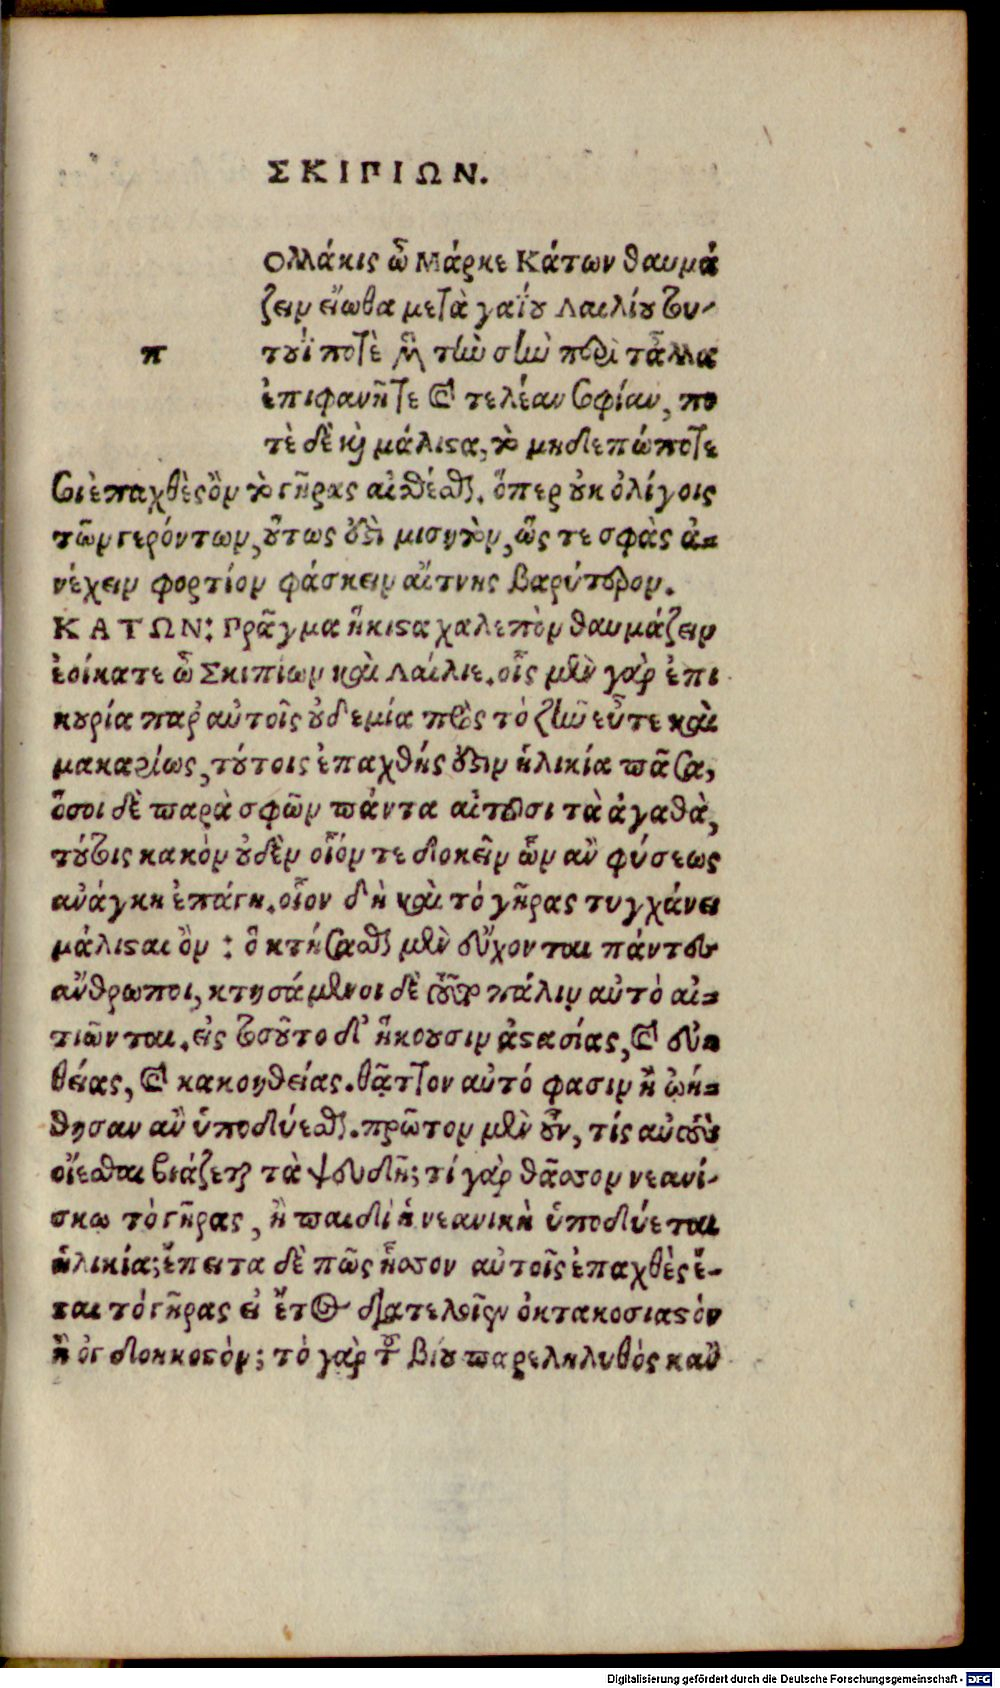 ΣΚΙΠΙΩΝ.
ολλάκις ὦ Μάρκε Κάτων θαυμά
ζειν εἴωθα μετὰ γαΐου Λαιλίου του
π τουῒ ποτὲ καὶ τὴν σὴν περὶ τἆλλα
ἐπιφανῆτε καὶ τελέαν σοφίαν, πο
τὲ δὲ καὶ μάλιστα, τὸ μηδεπώποτε
σοὶ ἐπαχθὲς ὂν τὸ γῆρας αἰσθέσθαι. ὅπερ οὐκ ὀλίγοις
τῶν γερόντων, οὕτως ἐστὶ μισητὸν, ὥς τε σφὰς ἀ-
νέχειν φορτίον φάσκειν αἴτνης βαρύτερον.
ΚΑΤΩΝ: Πρᾶγμα ἥκιστα χαλεπὸν θαυμάζειν
ἐοίκατε ὦ Σκιπίων καὶ Λαίλιε. οἷς μὲν γὰρ ἐπι
κουρία παρ' αὐτοῖς οὐδεμία πρὸς τὸ ζῆν εὖτε καὶ
μακαρίως, τούτοις ἐπαχθής ἐστιν ἡλικία πᾶσα,
ὅσοι δὲ παρὰ σφῶν πάντα αἰτοῦσι τὰ ἀγαθὰ,
τούτοις κακὸν οὐδὲν οἷόν τε δοκεῖν ὧν ἂν φύσεως
ἀνάγκη ἐπάγη. οἷον δὴ καὶ τὸ γῆρας τυγχάνει
μάλιστα ὂν : ὃ κτήσασθαι μὲν εὔχονται πάντες
ἄνθρωποι, κτησάμενοι δὲ πάλιν αὐτὸ αἰ-
τιῶνται. εἰς τοσοῦτο δ' ἥκουσιν ἀστασίας, καὶ εὐη-
θείας, καὶ κακοηθείας. θᾶττον αὐτό φασιν ἢ ᾠή-
θησαν ἂν ὑποδύεσθαι. πρῶτον μὲν οὖν, τίς αὐτοὺς
οἴεσθαι βιάζεται τὰ ψευδῆ; τί γὰρ θᾶσσον νεανί-
σκω τὸ γῆρας, ἢ παιδὶ ἡ νεανικὴ ὑποδύεται
ἡλικία; ἔπειτα δὲ πῶς ἧσσον αὐτοῖς ἐπαχθὲς ἔ-
σται τὸ γῆρας εἰ ἔτος διατελοῖεν ὀκτακοσιαστὸν
ἢ ὀγδοηκοστόν; τὸ γὰρ τοῦ βίου παρεληλυθὸς καθ
Digitalisierung gefördert durch die Deutsche Forschungsgemeinschaft - DFG